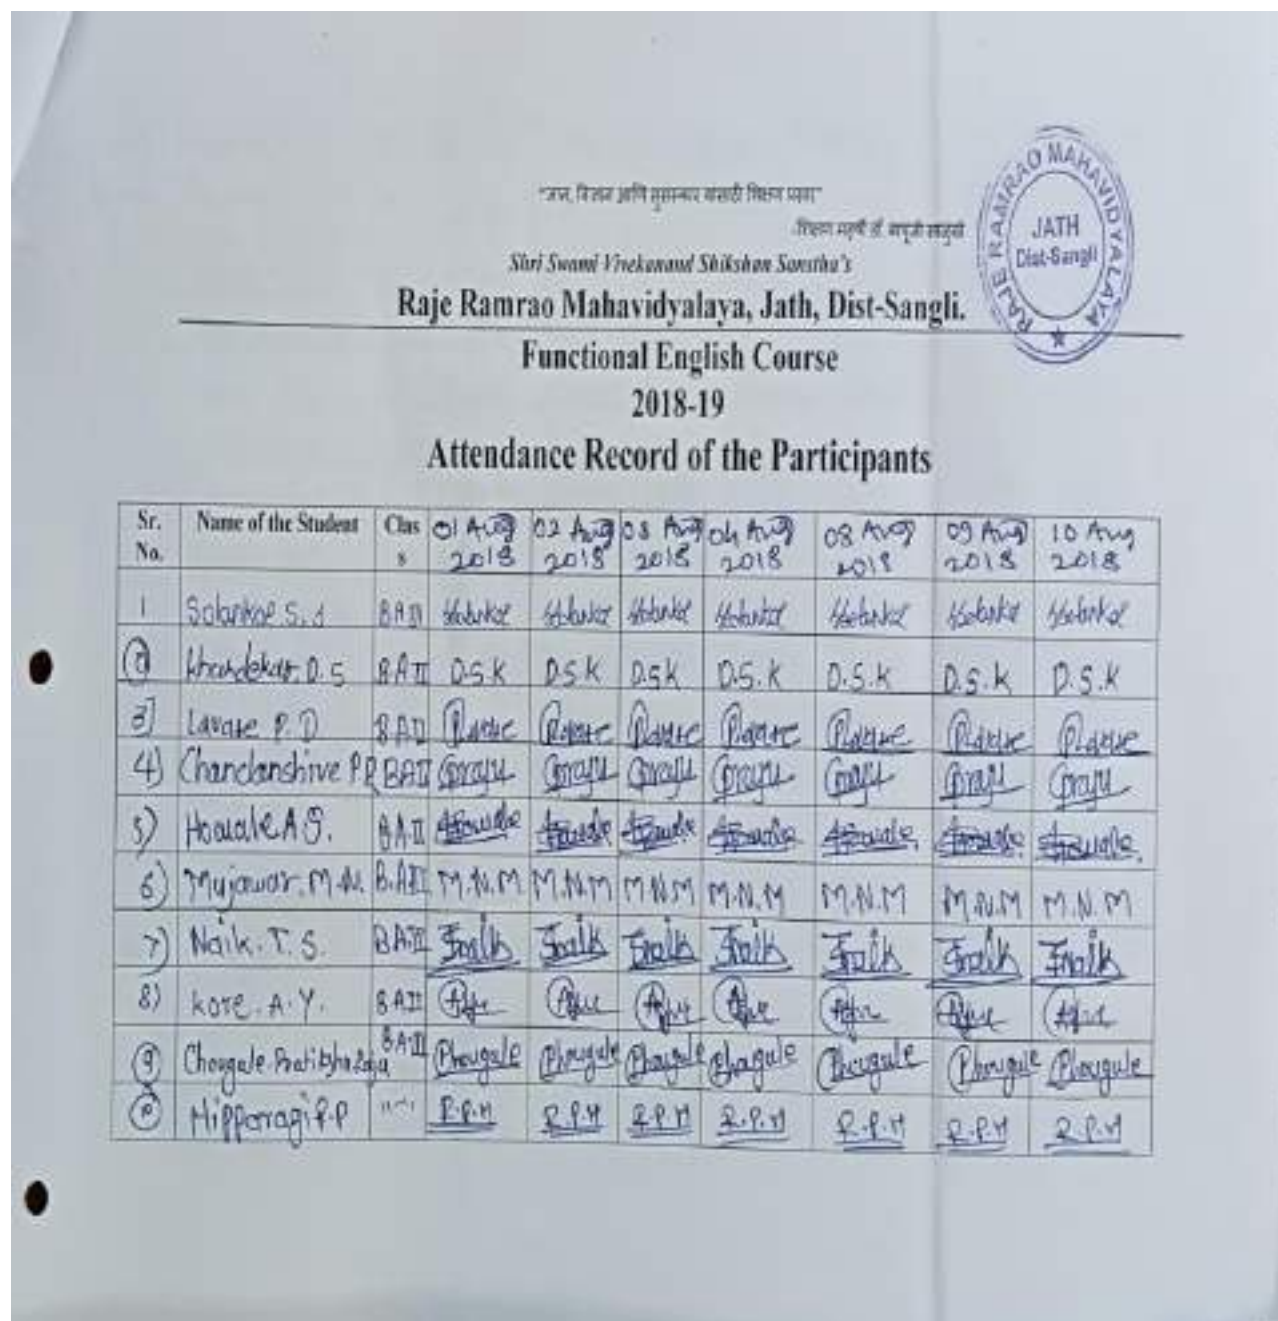 "ज्ञान, विज्ञान आणि सुसंस्कार यांसाठी शिक्षण प्रसार"
-शिक्षण महर्षी डॉ. बापूजी साळुंखे
Shri Swami Vivekanand Shikshan Sanstha's
Raje Ramrao Mahavidyalaya, Jath, Dist-Sangli.
RAJE RAMRAO MAHAVIDYALAYA
JATH
Dist-Sangli
Functional English Course
2018-19
Attendance Record of the Participants
Sr. No. Name of the Student Class 01 Aug 2018 02 Aug 2018 03 Aug 2018 04 Aug 2018 08 Aug 2018 09 Aug 2018 10 Aug 2018
1 Solankar S. BAII
2 Khandekar D.S BAII D.S.K D.S.K D.S.K D.S.K D.S.K D.S.K D.S.K
3) Lavate P.D BAII
4) Chandanshive P.R BAII
5) Hovale A S. BAII
6) Mujawar. M.N. B.AII M.N.M M.N.M M.N.M M.N.M M.N.M M.N.M M.N.M
7) Naik. T. S. BAII Tnaik Tnaik Tnaik Tnaik Tnaik Tnaik Tnaik
8) Kore. A.Y. BAII
9 Chougale BAII Chougule Chougule Chougule Chougule Chougule Chougule Chougule
10 Hipparagi R.P R.P.H R.P.H R.P.H R.P.H R.P.H R.P.H R.P.H